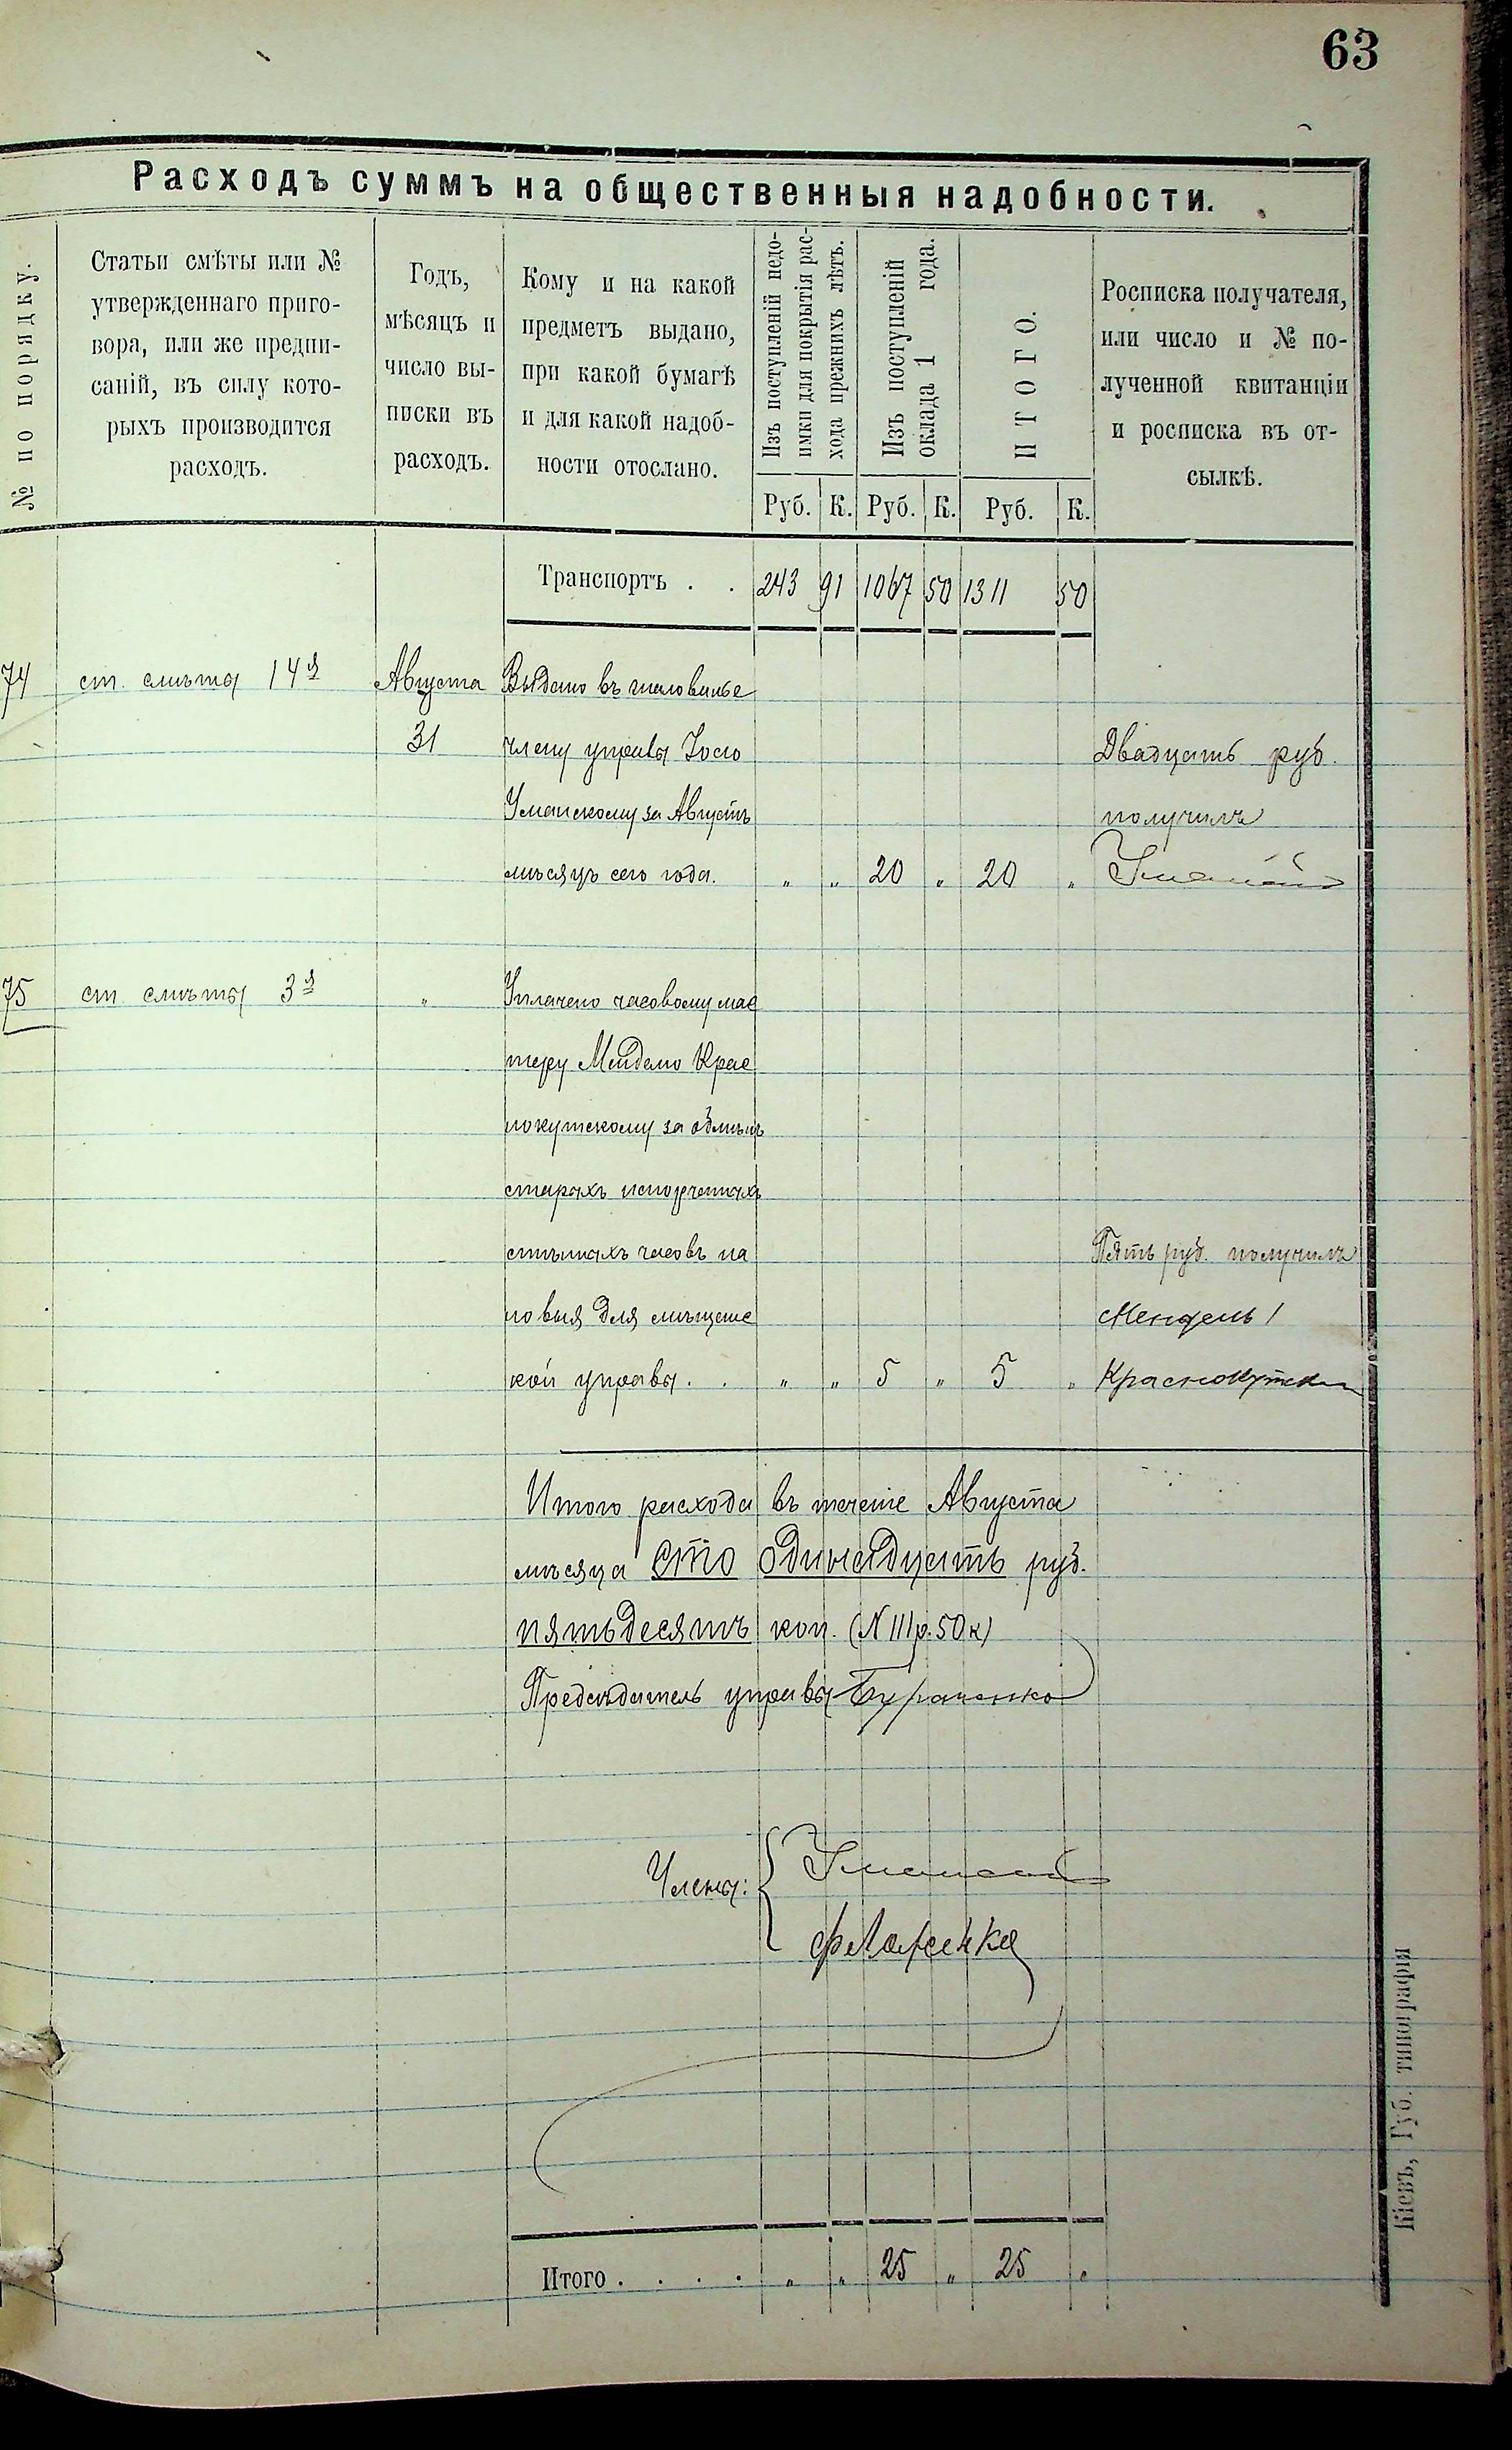 63
Расходъ суммъ на общественныя надобности.
№ по порядку.
Статьи смѣты или №
утвержденнаго приго-
вора, или же предпи-
саній, въ силу кото-
рыхъ производится
расходъ.
Годъ,
мѣсяцъ и
число вы-
писки въ
расходъ.
Кому и на какой
предметъ выдано,
при какой бумагѣ
и для какой надоб-
ности отослано.
Изъ поступленій недо-
имки для покрытія рас-
хода прежнихъ лѣтъ.
Изъ поступленій
оклада 1 года.
ИТОГО.
Росписка получателя,
или число и № по-
лученной квитанціи
и росписка въ от-
сылкѣ.
Руб. К. Руб. К. Руб. К.
Транспортъ . . 243 91 1067 50 1311 50
74 ст. смѣты 14я Августа Выдано въ
31 члену управы Двадцать руб.
Уманскому за Августъ получилъ
мѣсяцъ сего года. " " 20 " 20 " Уманскій
75 ст. смѣты 3я " Уплачено часовому мас
теру Менделю Крас
нокутскому за обмѣнъ
старыхъ испорченныхъ
стѣнныхъ часовъ на Пять руб. получилъ
новыя для мѣщанс Мендель
кой управы . . " " 5 " 5 " Краснокутский
Итого расхода въ теченіе Августа
мѣсяца сто одинадцать руб.
пятьдесятъ коп. (N 111 р. 50 к)
Предсѣдатель управы Бураченко
Члены: Уманскій
Итого . . . . " " 25 " 25 "
Кіевъ, Губ. типографія